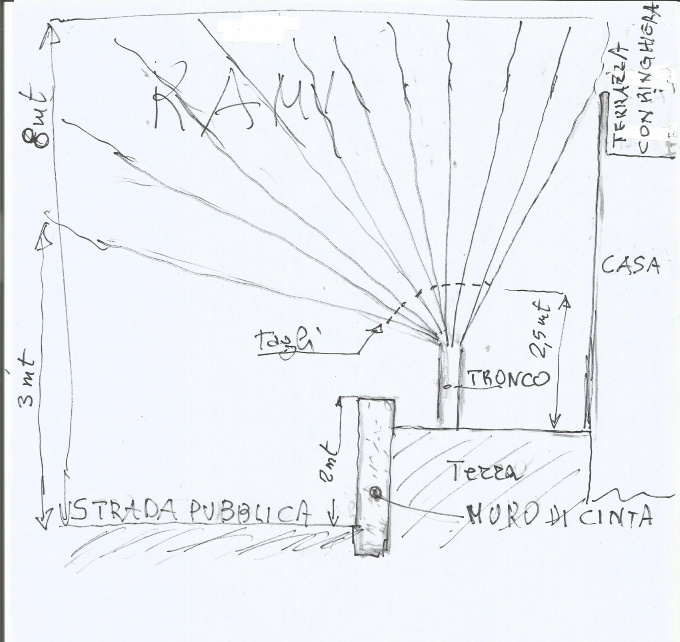 8mt
RAMI
TERRAZZA
CON RINGHIERA
CASA
Tagli
2,5mt
TRONCO
3mt
2mt
Terra
STRADA PUBBLICA
MURO DI CINTA